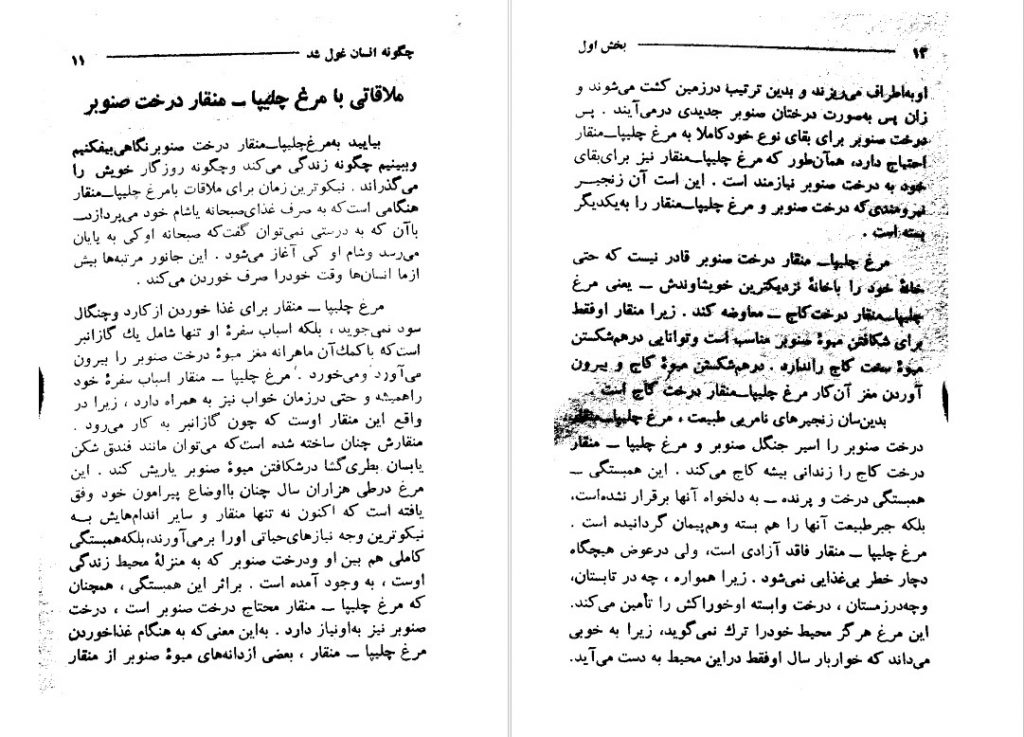 چگونه انسان غول شد ۱۱
ملاقاتی با مرغ چلیپا ـ منقار درخت صنوبر
بیایید به‌مرغ‌چلیپاـمنقار درخت صنوبر نگاهی‌بیفکنیم
و ببینیم چگونه زندگی می‌کند و چگونه روزگار خویش را
می‌گذراند . نیکوترین زمان برای ملاقات بامرغ چلیپاـمنقار
هنگامی است‌که به صرف غذای‌صبحانه یاشام خود می‌پردازد.
باآن که به درستی نمی‌توان گفت‌که صبحانه اوکی به پایان
می‌رسد وشام او کی آغاز می‌شود . این جانور مرتبه‌ها بیش
ازما انسان‌ها وقت خودرا صرف خوردن می‌کند .
مرغ چلیپا ـ منقار برای غذا خوردن از کارد وچنگال
سود نمی‌جوید ، بلکه اسباب سفرهٔ او تنها شامل یك گازانبر
است‌که باکمك‌آن ماهرانه مغز میوهٔ درخت صنوبر را بیرون
می‌آورد ومی‌خورد . مرغ چلیپا ـ منقار اسباب سفرهٔ خود
راهمیشه و حتی درزمان خواب نیز به همراه دارد ، زیرا در
واقع این منقار اوست که چون گازانبر به کار می‌رود .
منقارش چنان ساخته شده است‌که می‌توان مانند فندق شکن
یابسان بطری‌گشا درشکافتن میوهٔ صنوبر یاریش کند . این
مرغ درطی هزاران سال چنان بااوضاع پیرامون خود وفق
یافته است که اکنون نه تنها منقار و سایر اندام‌هایش به
نیکوترین وجه نیازهای‌حیاتی اورا برمی‌آورند،بلکه‌همبستگی
کاملی هم بین او ودرخت صنوبر که به منزلهٔ محیط زندگی
اوست ، به وجود آمده است . براثر این همبستگی ، همچنان
که مرغ چلیپا ـ منقار محتاج درخت صنوبر است ، درخت
صنوبر نیز به‌اونیاز دارد . به‌این معنی‌که به هنگام غذاخوردن
مرغ چلیپا ـ منقار ، بعضی ازدانه‌های میوهٔ صنوبر از منقار
۱۲ بخش اول
اوبه‌اطراف می‌ریزند و بدین ترتیب درزمین کشت می‌شوند و
زان پس به‌صورت درختان صنوبر جدیدی درمی‌آیند . پس
درخت صنوبر برای بقای نوع خود کاملا به مرغ چلیپاـمنقار
احتیاج دارد، همآن‌طور که مرغ چلیپاـمنقار نیز برای‌بقای
خود به درخت صنوبر نیازمند است . این است آن زنجیر
نیرومندی‌که درخت صنوبر و مرغ چلیپاـمنقار را به‌یکدیگر
بسته است .
مرغ چلیپاـ منقار درخت صنوبر قادر نیست که حتی
خانهٔ خود را باخانهٔ نزدیکترین خویشاوندش ـ یعنی مرغ
چلیپاـمنقار درخت‌کاج ـ معاوضه کند . زیرا منقار اوفقط
برای شکافتن میوهٔ صنوبر مناسب است وتوانایی درهم‌شکستن
میوهٔ سخت کاج راندارد . درهم‌شکستن میوهٔ کاج و بیرون
آوردن مغز آن‌کار مرغ چلیپاـمنقار درخت کاج است .
بدین‌سان زنجیرهای نامریی طبیعت ، مرغ چلیپاـمنقار
درخت صنوبر را اسیر جنگل صنوبر و مرغ چلیپا ـ منقار
درخت کاج را زندانی بیشه کاج می‌کند . این همبستگی ـ
همبستگی درخت و پرنده ـ به دلخواه آنها برقرار نشده‌است،
بلکه جبرطبیعت آنها را هم بسته وهم‌پیمان گردانیده است .
مرغ چلیپا ـ منقار فاقد آزادی است، ولی درعوض هیچگاه
دچار خطر بی‌غذایی نمی‌شود . زیرا همواره ، چه در تابستان،
وچه‌درزمستان ، درخت وابسته اوخوراکش را تأمین می‌کند.
این مرغ هرگز محیط خودرا ترك نمی‌گوید، زیرا به خوبی
می‌داند که خواربار سال اوفقط دراین محیط به دست می‌آید.